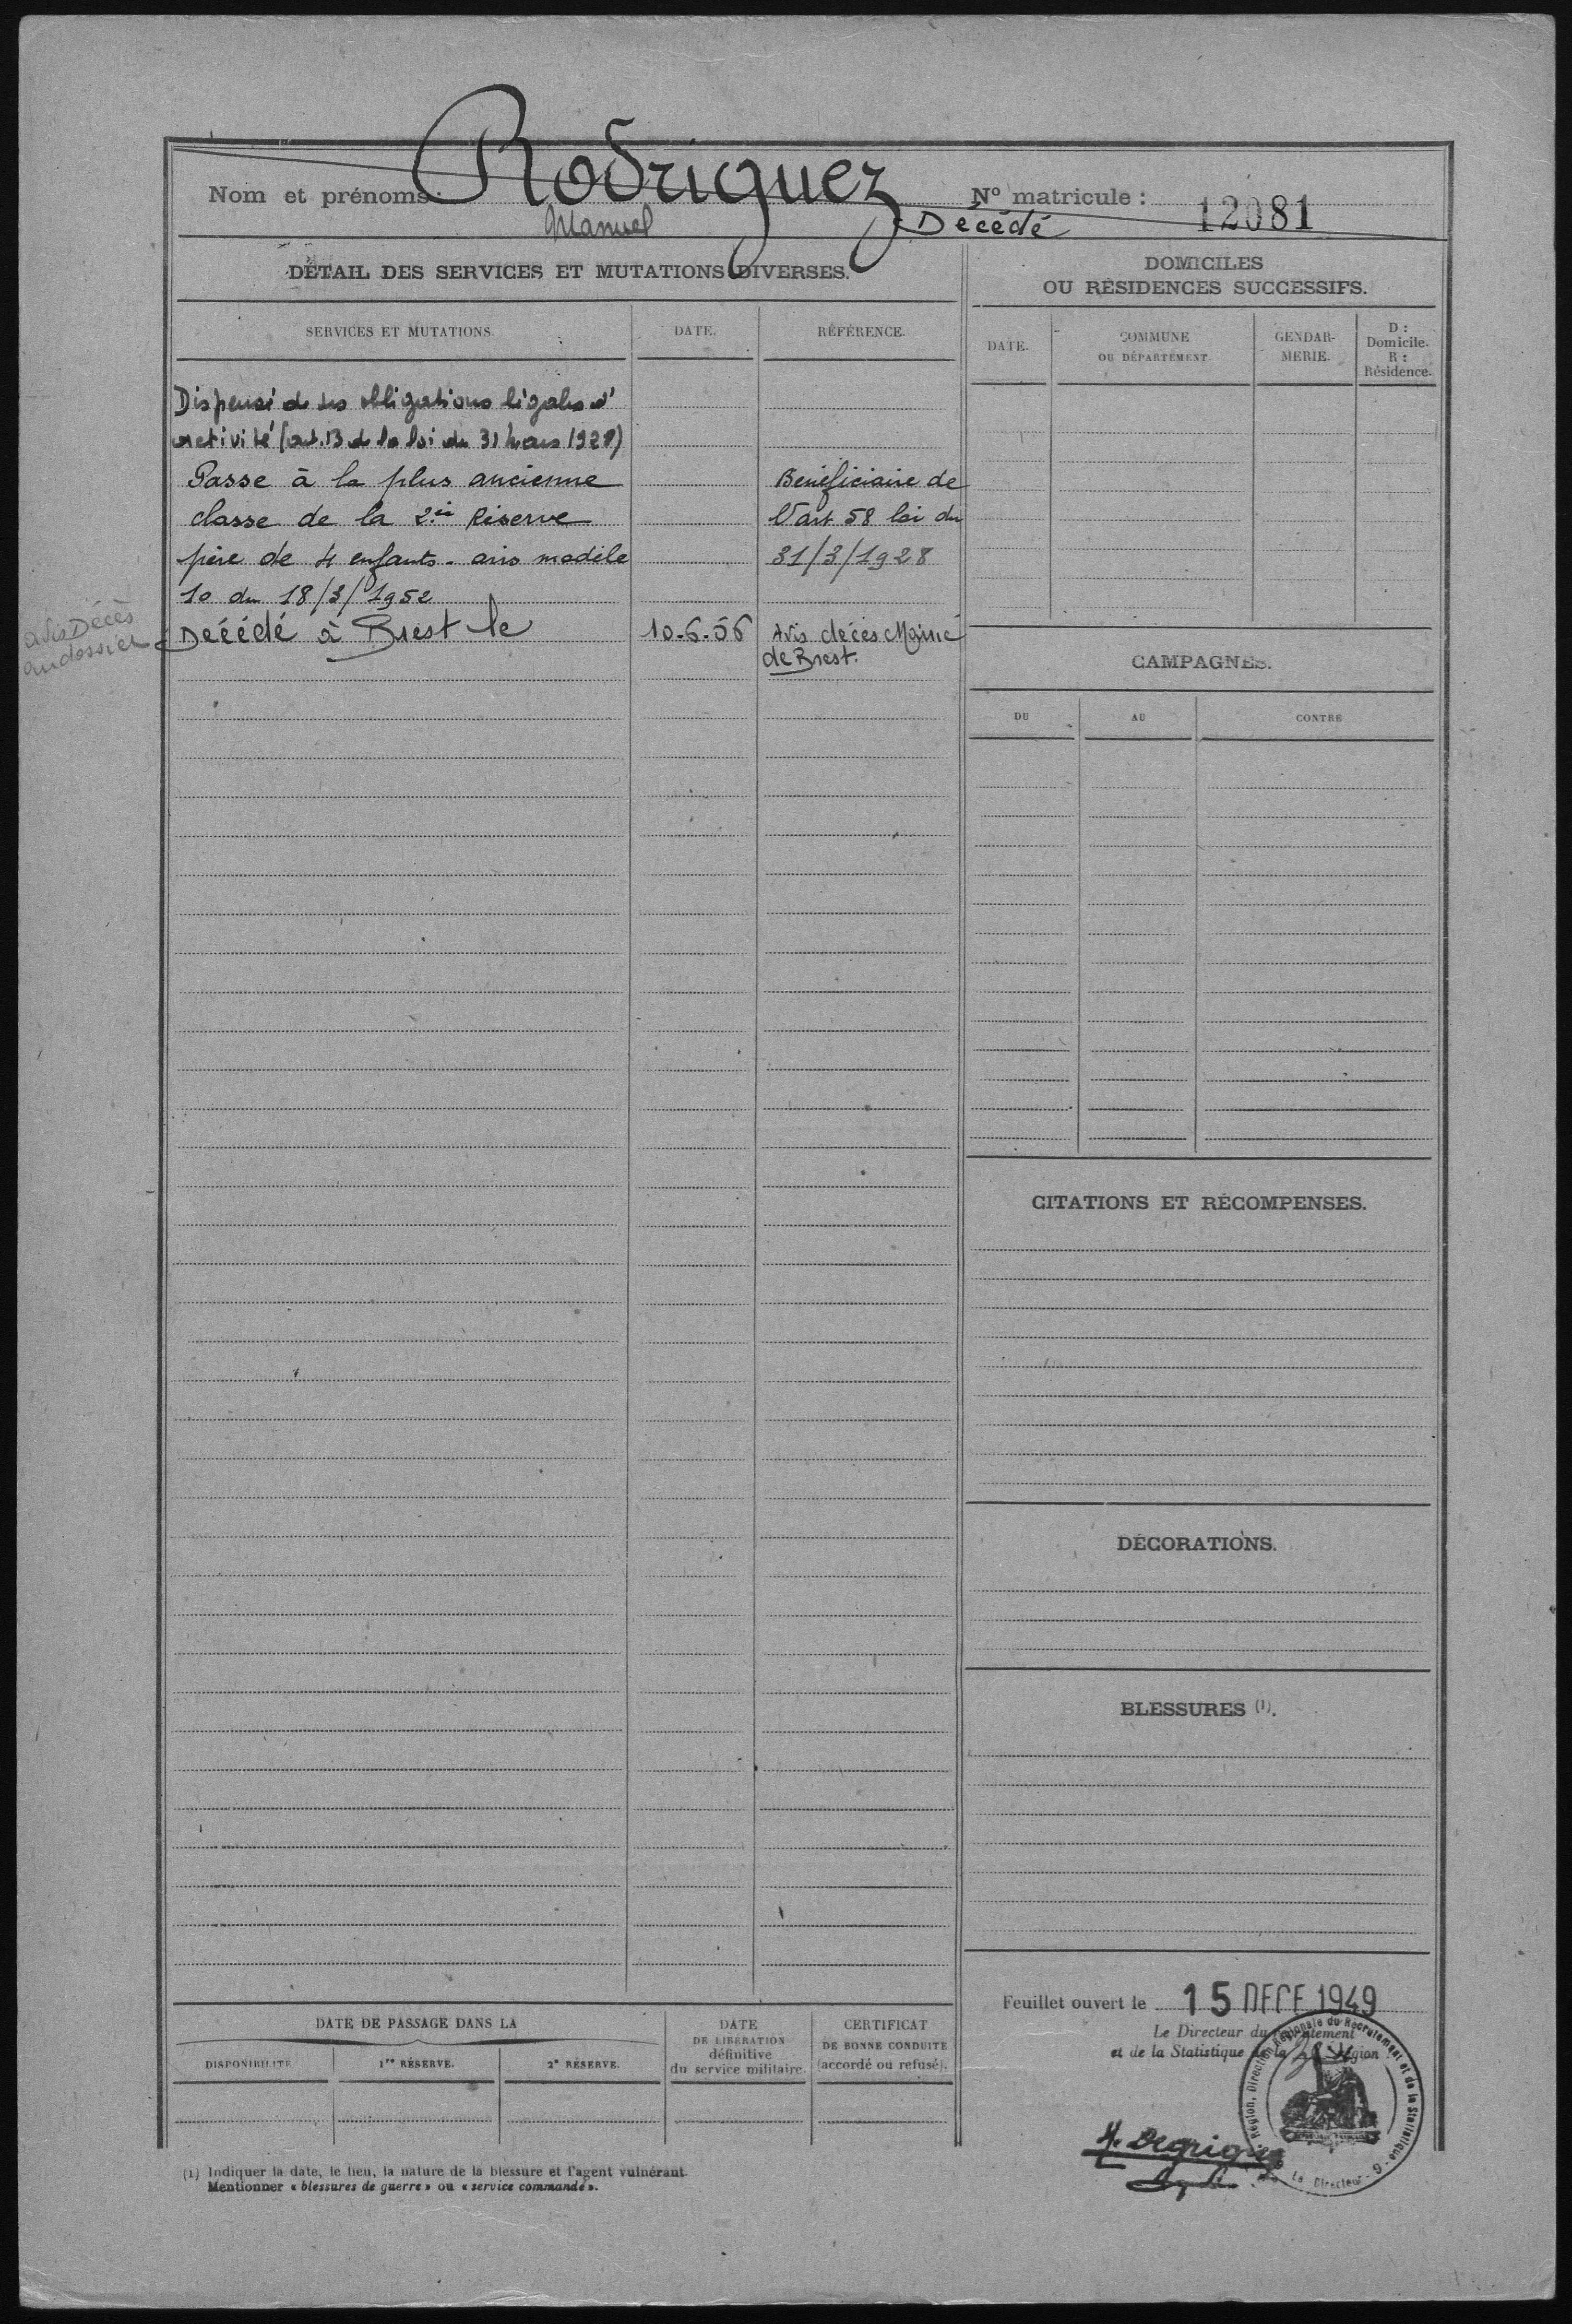 Nom et prénoms: Rodriguez
Manuel
N° matricule : 12081
Décédé
DÉTAIL DES SERVICES ET MUTATIONS DIVERSES.
SERVICES ET MUTATIONS.
DATE.
RÉFÉRENCE.
Dispensé de ses obligations légales d'
activité (art. 13 de la loi du 31 mars 1928)
Passe à la plus ancienne
classe de la 2ie Réserve
père de 4 enfants - avis modèle
10 du 18/3/1952
Bénéficiaire de
l'art 58 loi du
31/3/1928
Avis Décès
au dossier
Décédé à Brest le
10-6-56
Avis décès Mairie
de Brest.
DOMICILES
OU RÉSIDENCES SUCCESSIFS.
DATE.
COMMUNE
OU DÉPARTEMENT
GENDAR-
MERIE.
D :
Domicile.
R :
Résidence.
CAMPAGNES.
DU
AU
CONTRE
CITATIONS ET RÉCOMPENSES.
DÉCORATIONS.
BLESSURES (1).
Feuillet ouvert le 15 DECE 1949
Le Directeur du Recrutement
et de la Statistique de la Région
Région, Direction Régionale du Recrutement et de la Statistique
Le Directeur
DATE DE PASSAGE DANS LA
DISPONIBILITÉ
1re RÉSERVE.
2e RÉSERVE.
DATE
DE LIBÉRATION
définitive
du service militaire.
CERTIFICAT
DE BONNE CONDUITE
(accordé ou refusé).
(1) Indiquer la date, le lieu, la nature de la blessure et l'agent vulnérant
Mentionner « blessures de guerre » ou « service commandé ».